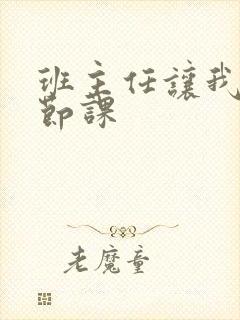 班主任讓我
節課
老魔童